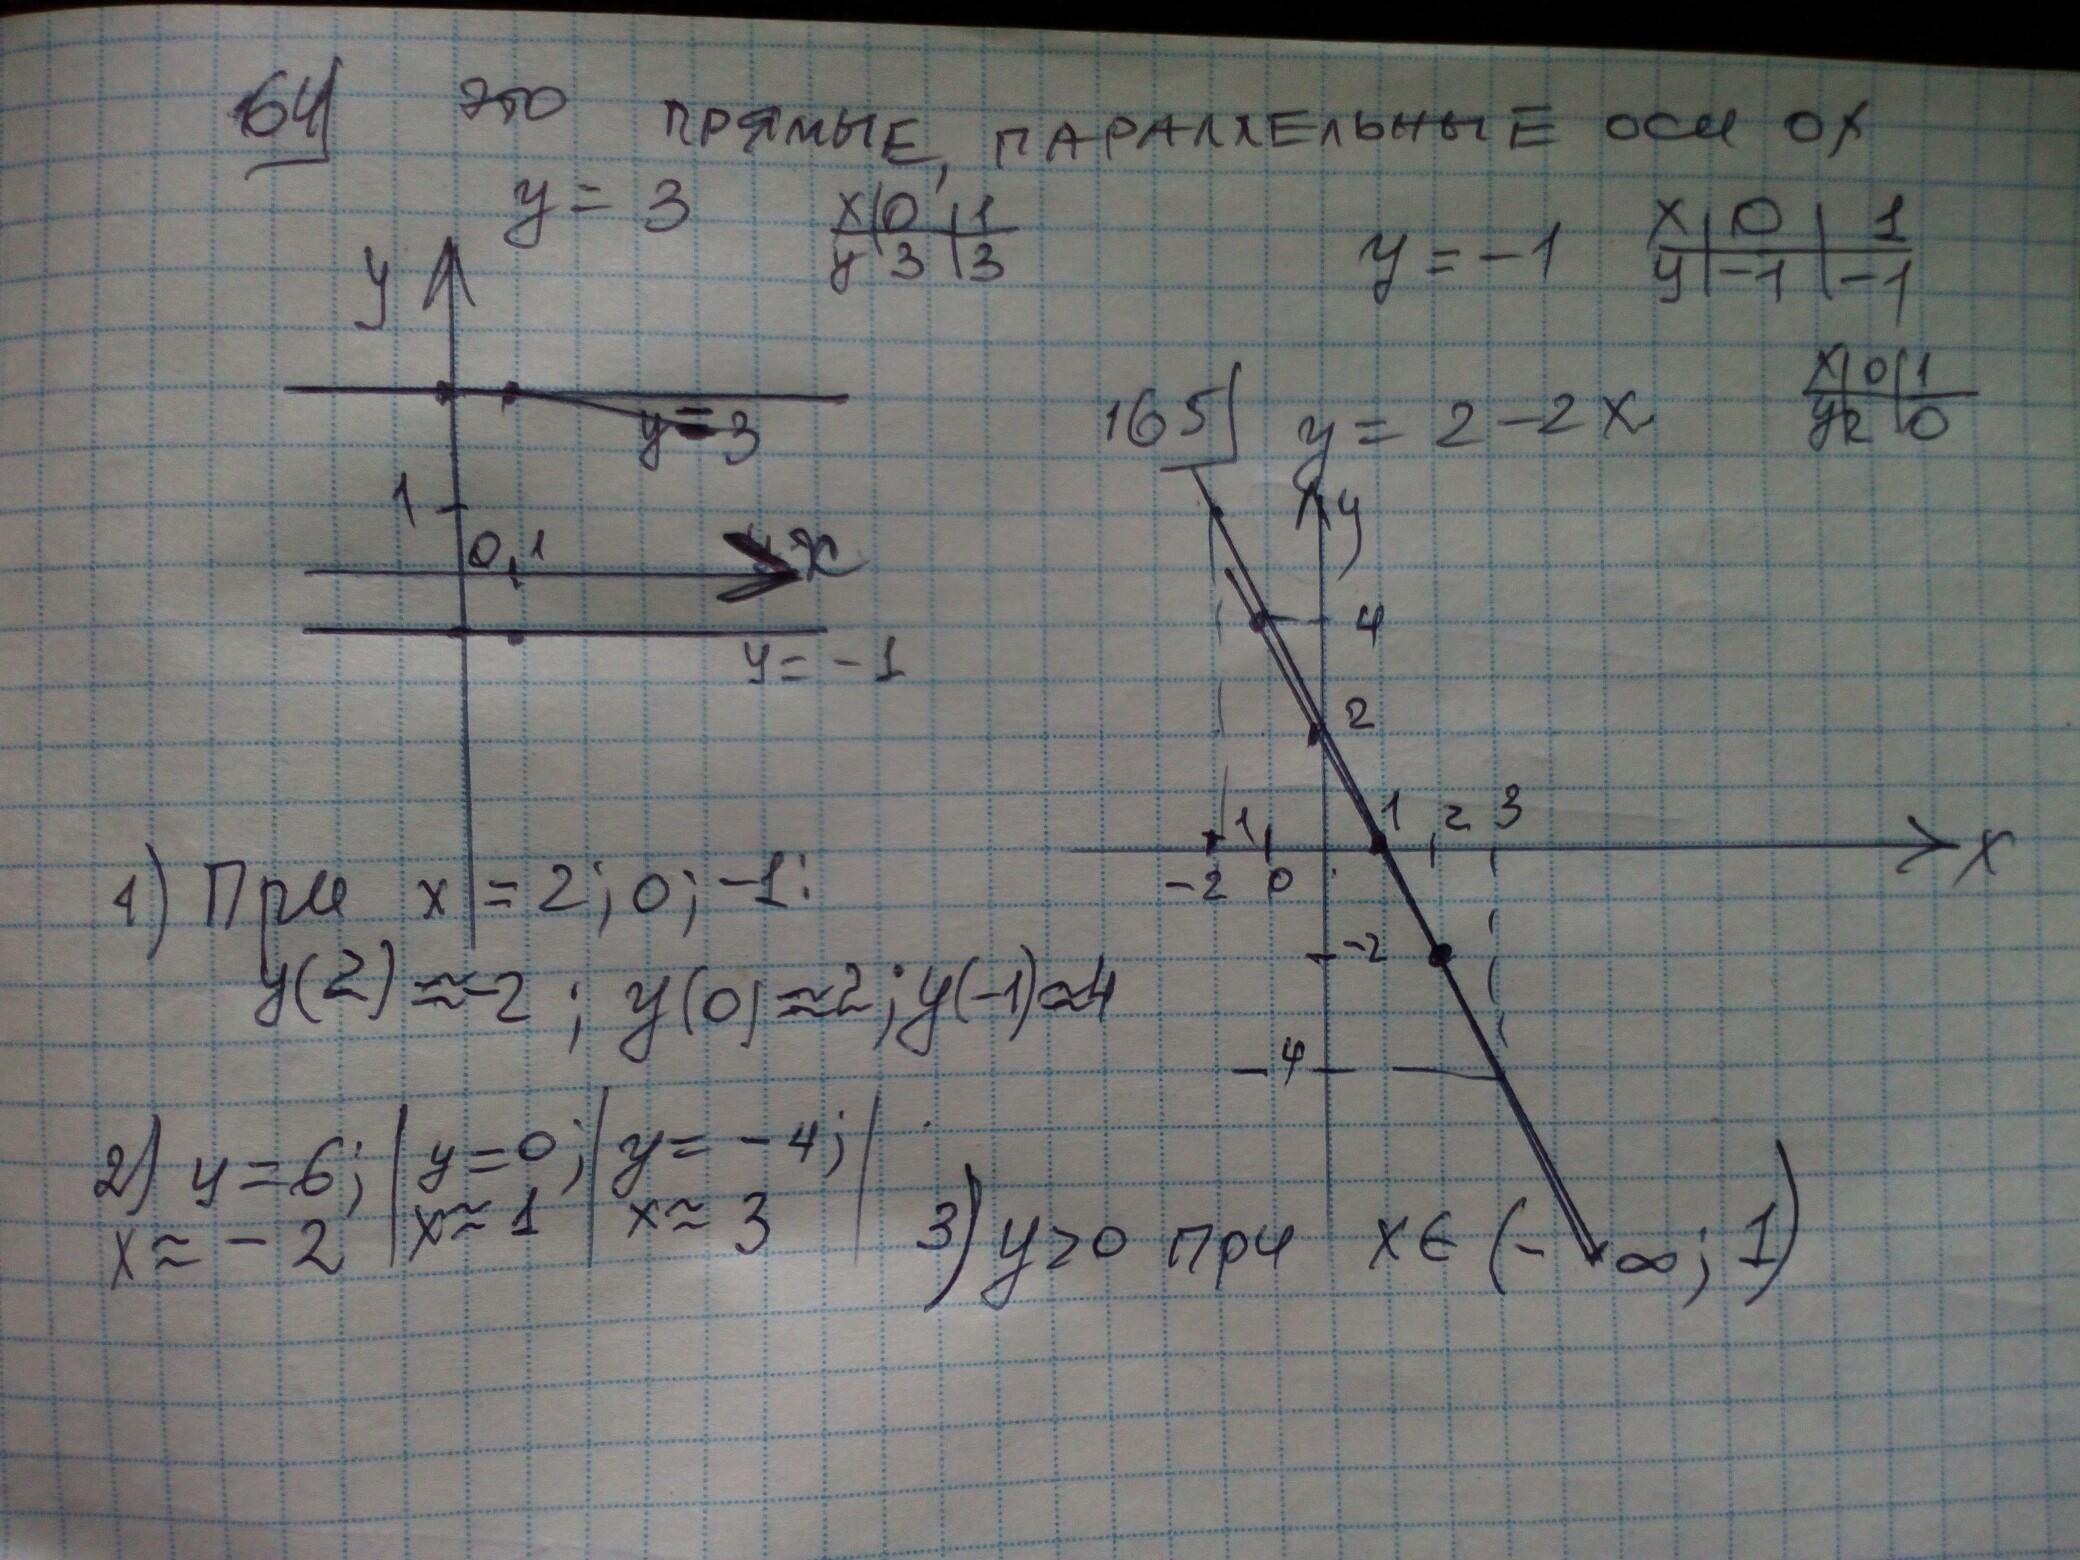 164 это ПРЯМЫЕ, ПАРАЛЛЕЛЬНЫЕ оси ОХ
y = 3
x 0 1
y 3 3
y = -1
x 0 1
y -1 -1
y
y = 3
1
0 1
x
y = -1
165 y = 2 - 2x
x 0 1
y 2 0
y
4
2
1 2 3
-1
-2 0
x
-2
-4
1) При x = 2; 0; -1:
y(2) ≈ -2; y(0) ≈ 2; y(-1) ≈ 4
2) y = 6; | y = 0; | y = -4; |
x ≈ -2 | x ≈ 1 | x ≈ 3
3) y > 0 при x ∈ (-∞; 1)